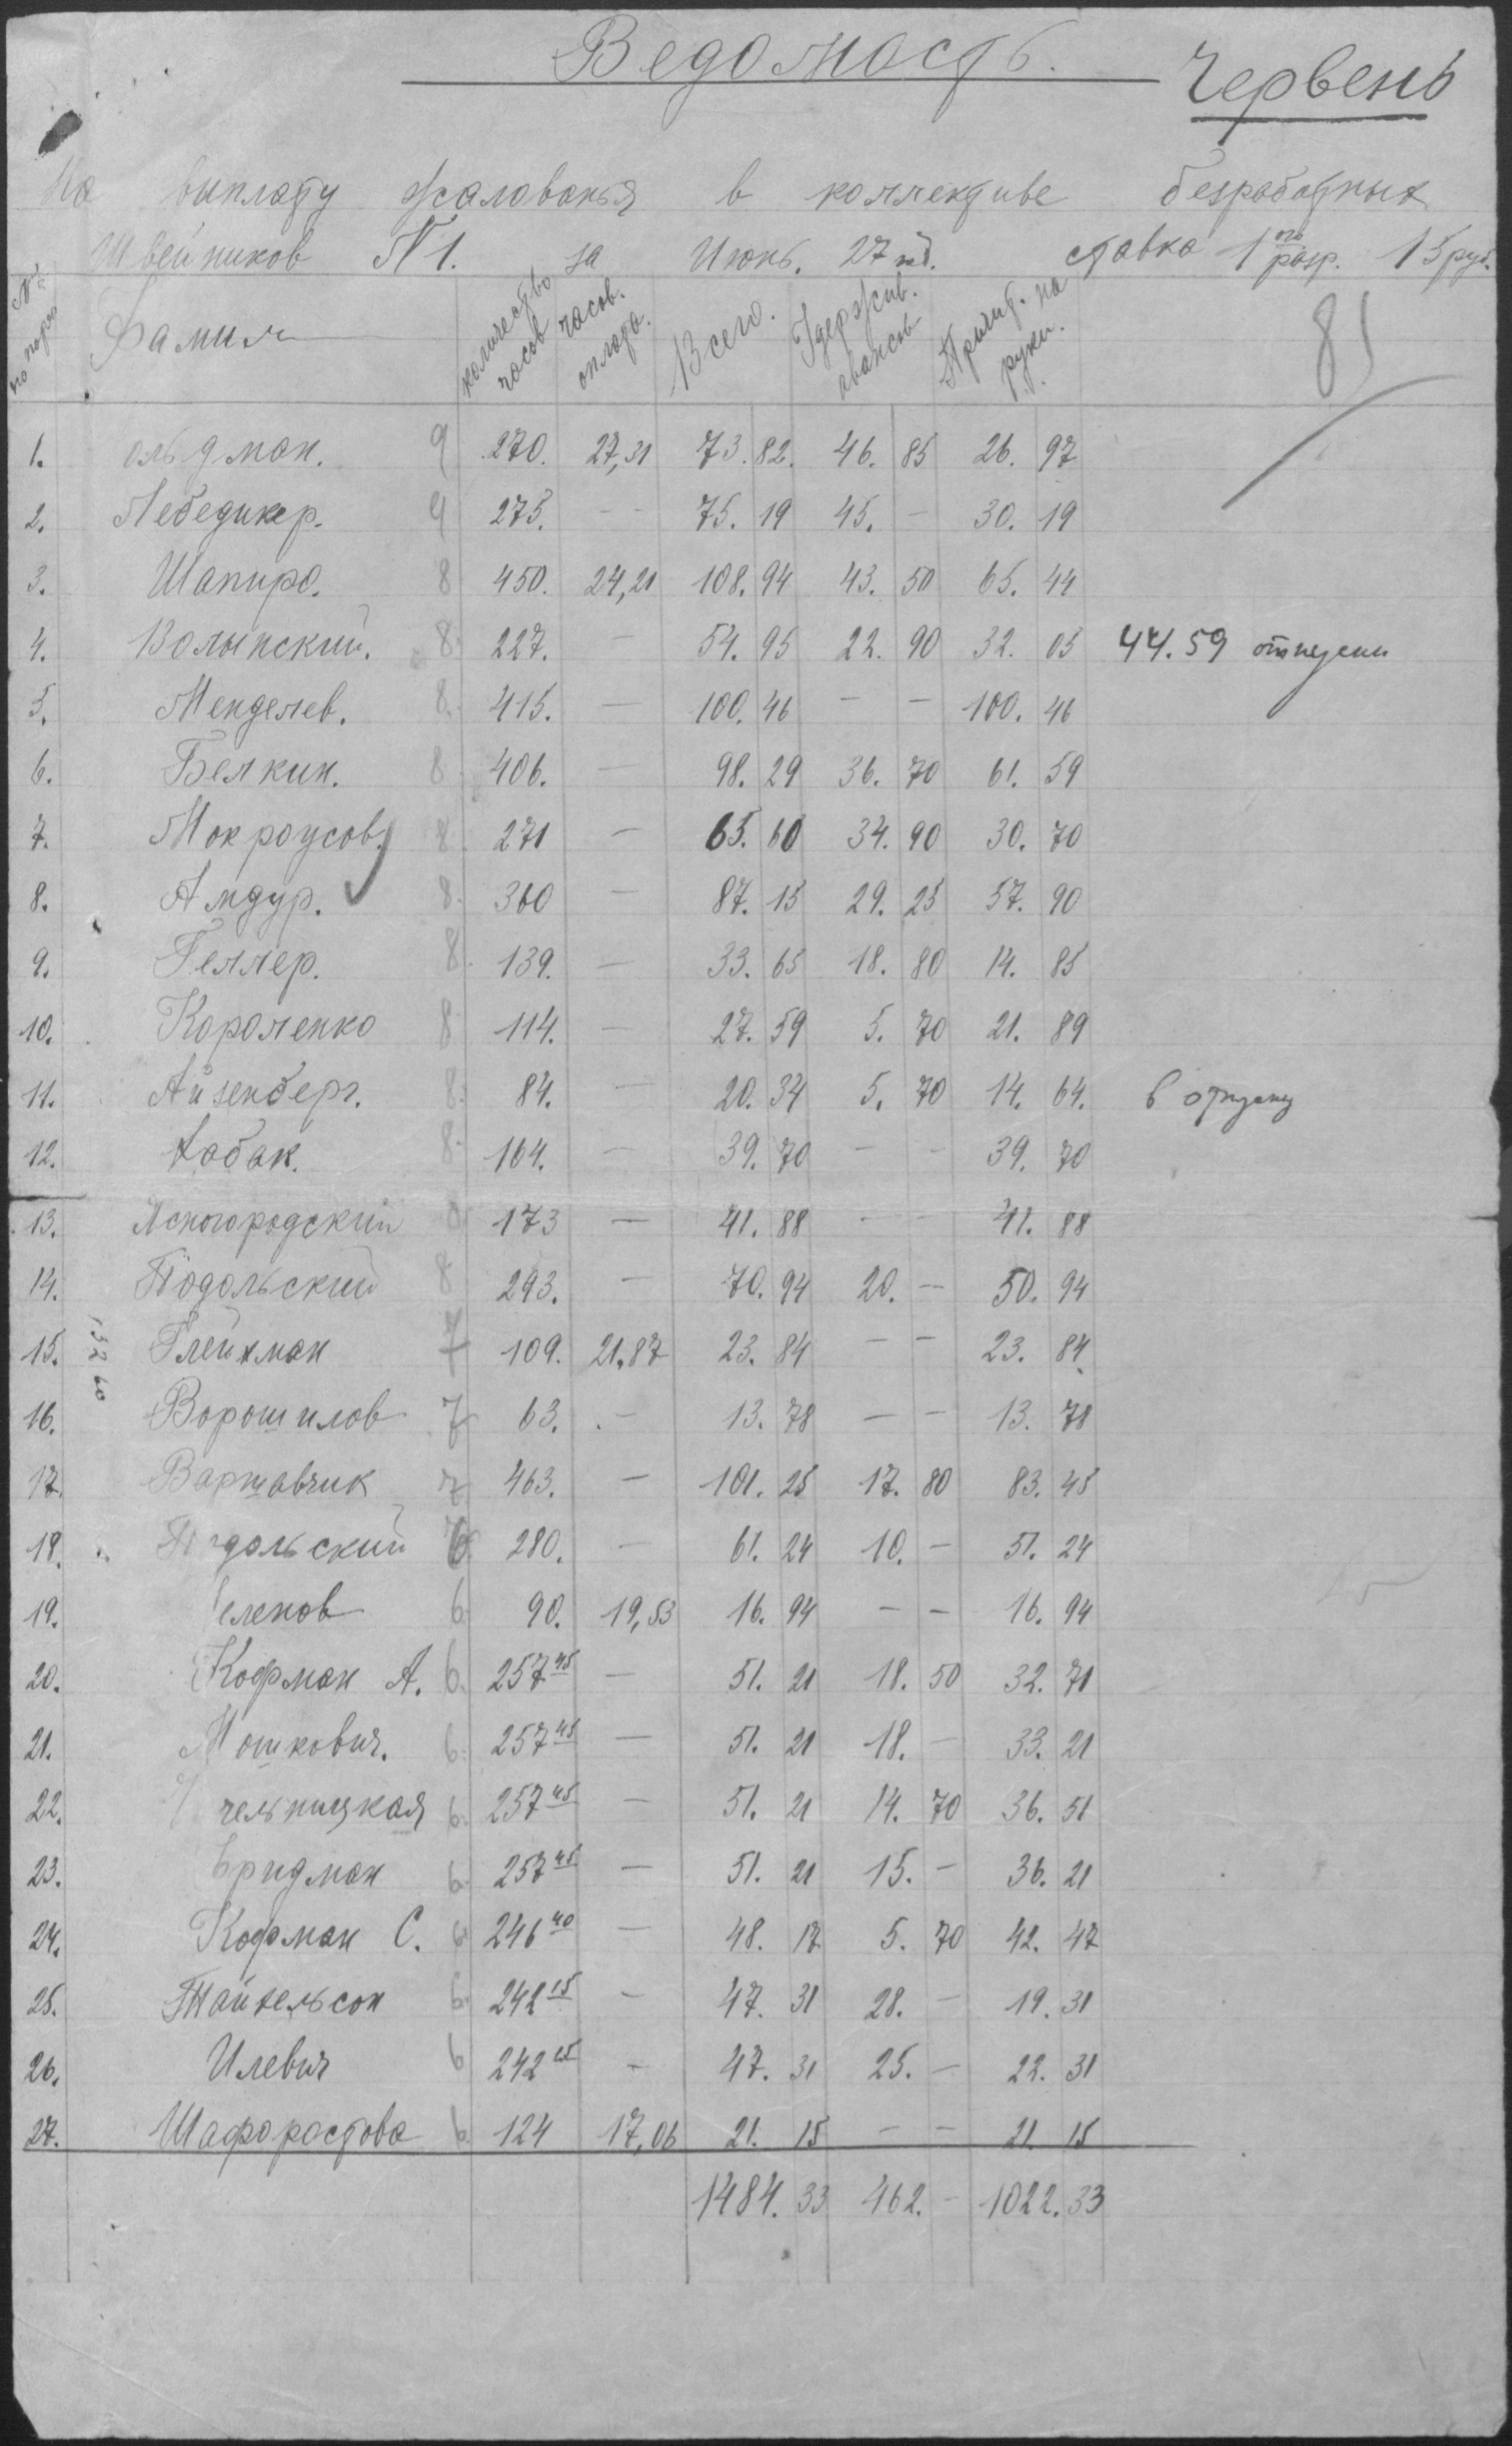 Ведомость.
Червень
На выплату жалованья в коллективе безработных
Швейников N 1. за Июнь. 27 ставка 1 ого разр. 15 руб.
№ по поряд Фамил количество часов часов. оплата. Всего. Удержив. авансы Причит. на руки.
81
1. ольдман. 9 270. 27,31 73. 82. 46. 85 26. 97
2. Лебедикер. 9 275. - - 75. 19 45. - 30. 19
3. Шапиро. 8 450. 24,21 108. 94 43. 50 65. 44
4. Волынский. 8. 227. - 54. 95 22. 90 32. 05 44.59
5. Менделев. 8. 415. - 100. 46 - - 100. 46
6. Белкин. 8 406. - 98. 29 36. 70 61. 59
7. Мокроусов. 8. 271 - 65. 60 34. 90 30. 70
8. Амдур. 8. 360 - 87. 15 29. 25 57. 90
9. Геллер. 8. 139. - 33. 65 18. 80 14. 85
10. Короленко 8 114. - 27. 59 5. 70 21. 89
11. Айзенберг. 8. 84. - 20. 34 5. 70 14. 64. в отпуску
12. Хабак. 8. 164. - 39. 70 - - 39. 70
13. Ясногородский 8 173 - 41. 88 - - 41. 88
14. Подольский 8 293. - 70. 94 20. - 50. 94
15. Глейхман 7 109. 21.87 23. 84 - - 23. 84
13260
16. Ворошилов 7 63. - 13. 78 - - 13. 78
17. Варшавчик 7 463. - 101. 25 17. 80 83. 45
18. Подольский 280. - 61. 24 10. - 51. 24
19. еленов 6. 90. 19,53 16. 94 - - 16. 94
20. Кофман А. 6. 257 45 - 51. 21 18. 50 32. 71
21. Мошкович. 6. 257 45 - 51. 21 18. - 33. 21
22. чельницкая 6. 257 45 - 51. 21 14. 70 36. 51
23. Фридман 6. 257 45 - 51. 21 15. - 36. 21
24. Кофман С. 6. 246 40 - 48. 17 5. 70 42. 47
25. Тайхельсон 6. 242 15 - 47. 31 28. - 19. 31
26. Илевич 6 242 15 - 47. 31 25. - 22. 31
27. Шафоростова 6. 124 17,06 21. 15 - - 21. 15
1484. 33 462. - 1022. 33